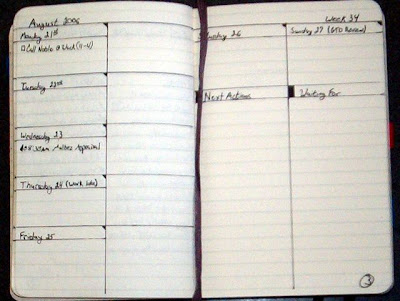 August 2006
Monday 21st
□ Call Noble @ Work (11-4)
Tuesday 22nd
Wednesday 23
Thursday 24 (Work Late)
Friday 25
Week 34
Saturday 26
Sunday 27 (GTD Review)
Next Actions
Waiting For